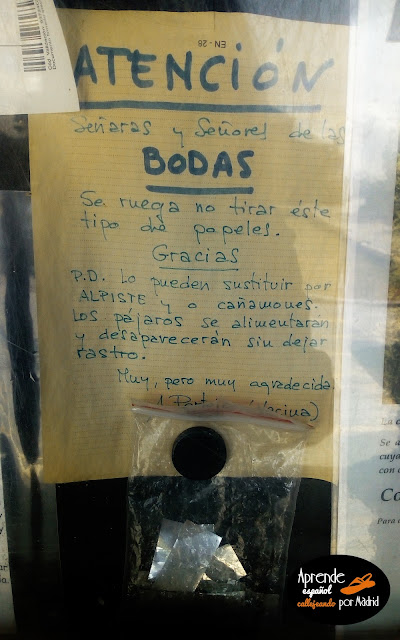 EN - 28
ATENCIÓN
Señaras y Señores de las
BODAS
Se ruega no tirar éste
tipo de papeles.
Gracias
P.D. Lo pueden sustituir por
ALPISTE y o cañamones.
Los pájaros se alimentarán
y desaparecerán sin dejar
rastro.
Muy, pero muy agradecida
Aprende
español
callejeando por Madrid